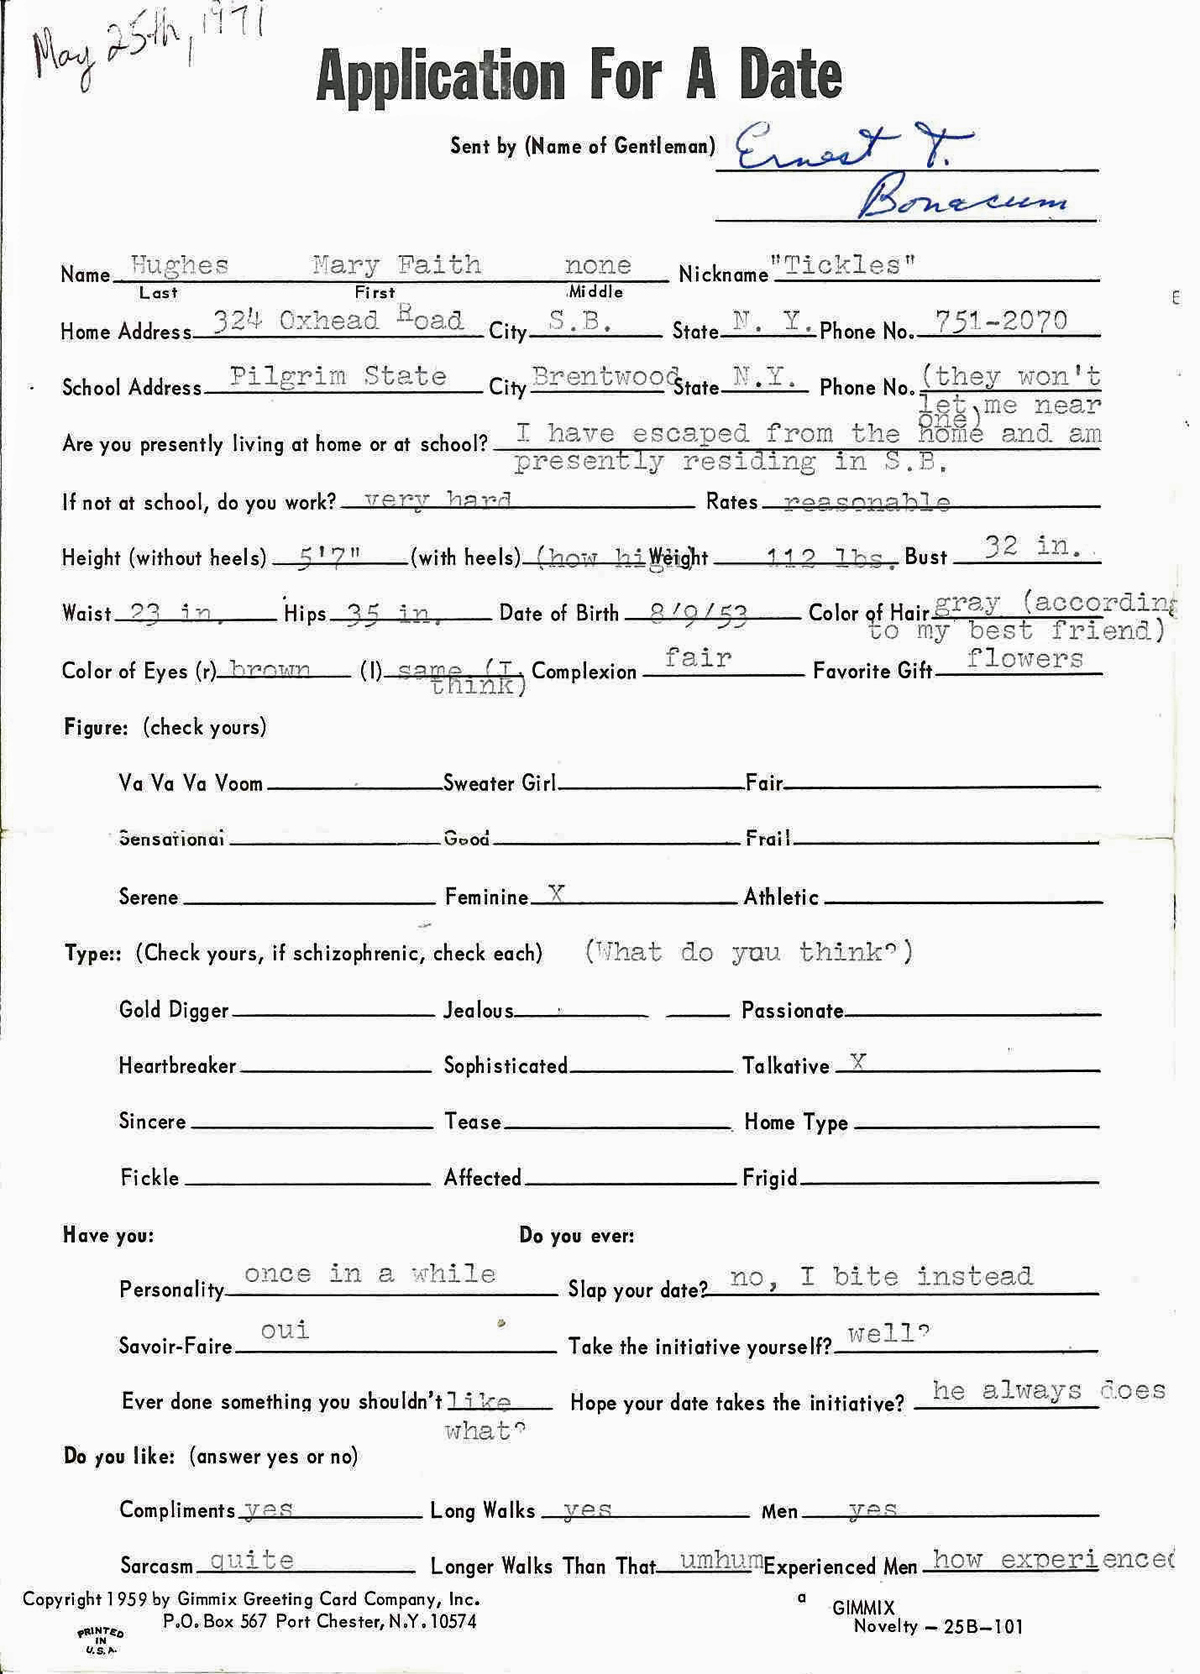 May 25th, 1971
Application For A Date
Sent by (Name of Gentleman) Ernest T.
Bonacum
Name Hughes Mary Faith none Nickname "Tickles"
Last First Middle
Home Address 324 Oxhead Road City S.B. State N. Y. Phone No. 751-2070
School Address Pilgrim State City Brentwood State N.Y. Phone No. (they won't
let me near
one)
Are you presently living at home or at school? I have escaped from the home and am
presently residing in S.B.
If not at school, do you work? very hard Rates reasonable
Height (without heels) 5'7" (with heels) (how high) Weight 112 lbs. Bust 32 in.
Waist 23 in. Hips 35 in. Date of Birth 8/9/53 Color of Hair gray (according
to my best friend)
Color of Eyes (r) brown (l) same (I Complexion fair Favorite Gift flowers
think)
Figure: (check yours)
Va Va Va Voom Sweater Girl Fair
Sensational Good Frail
Serene Feminine X Athletic
Type:: (Check yours, if schizophrenic, check each) (What do you think?)
Gold Digger Jealous Passionate
Heartbreaker Sophisticated Talkative X
Sincere Tease Home Type
Fickle Affected Frigid
Have you: Do you ever:
Personality once in a while Slap your date? no, I bite instead
Savoir-Faire oui Take the initiative yourself? well?
Ever done something you shouldn't like Hope your date takes the initiative? he always does
what?
Do you like: (answer yes or no)
Compliments yes Long Walks yes Men yes
Sarcasm quite Longer Walks Than That umhum Experienced Men how experienced
Copyright 1959 by Gimmix Greeting Card Company, Inc.
P.O. Box 567 Port Chester, N.Y. 10574
PRINTED
IN
U.S.A.
a GIMMIX
Novelty – 25B–101